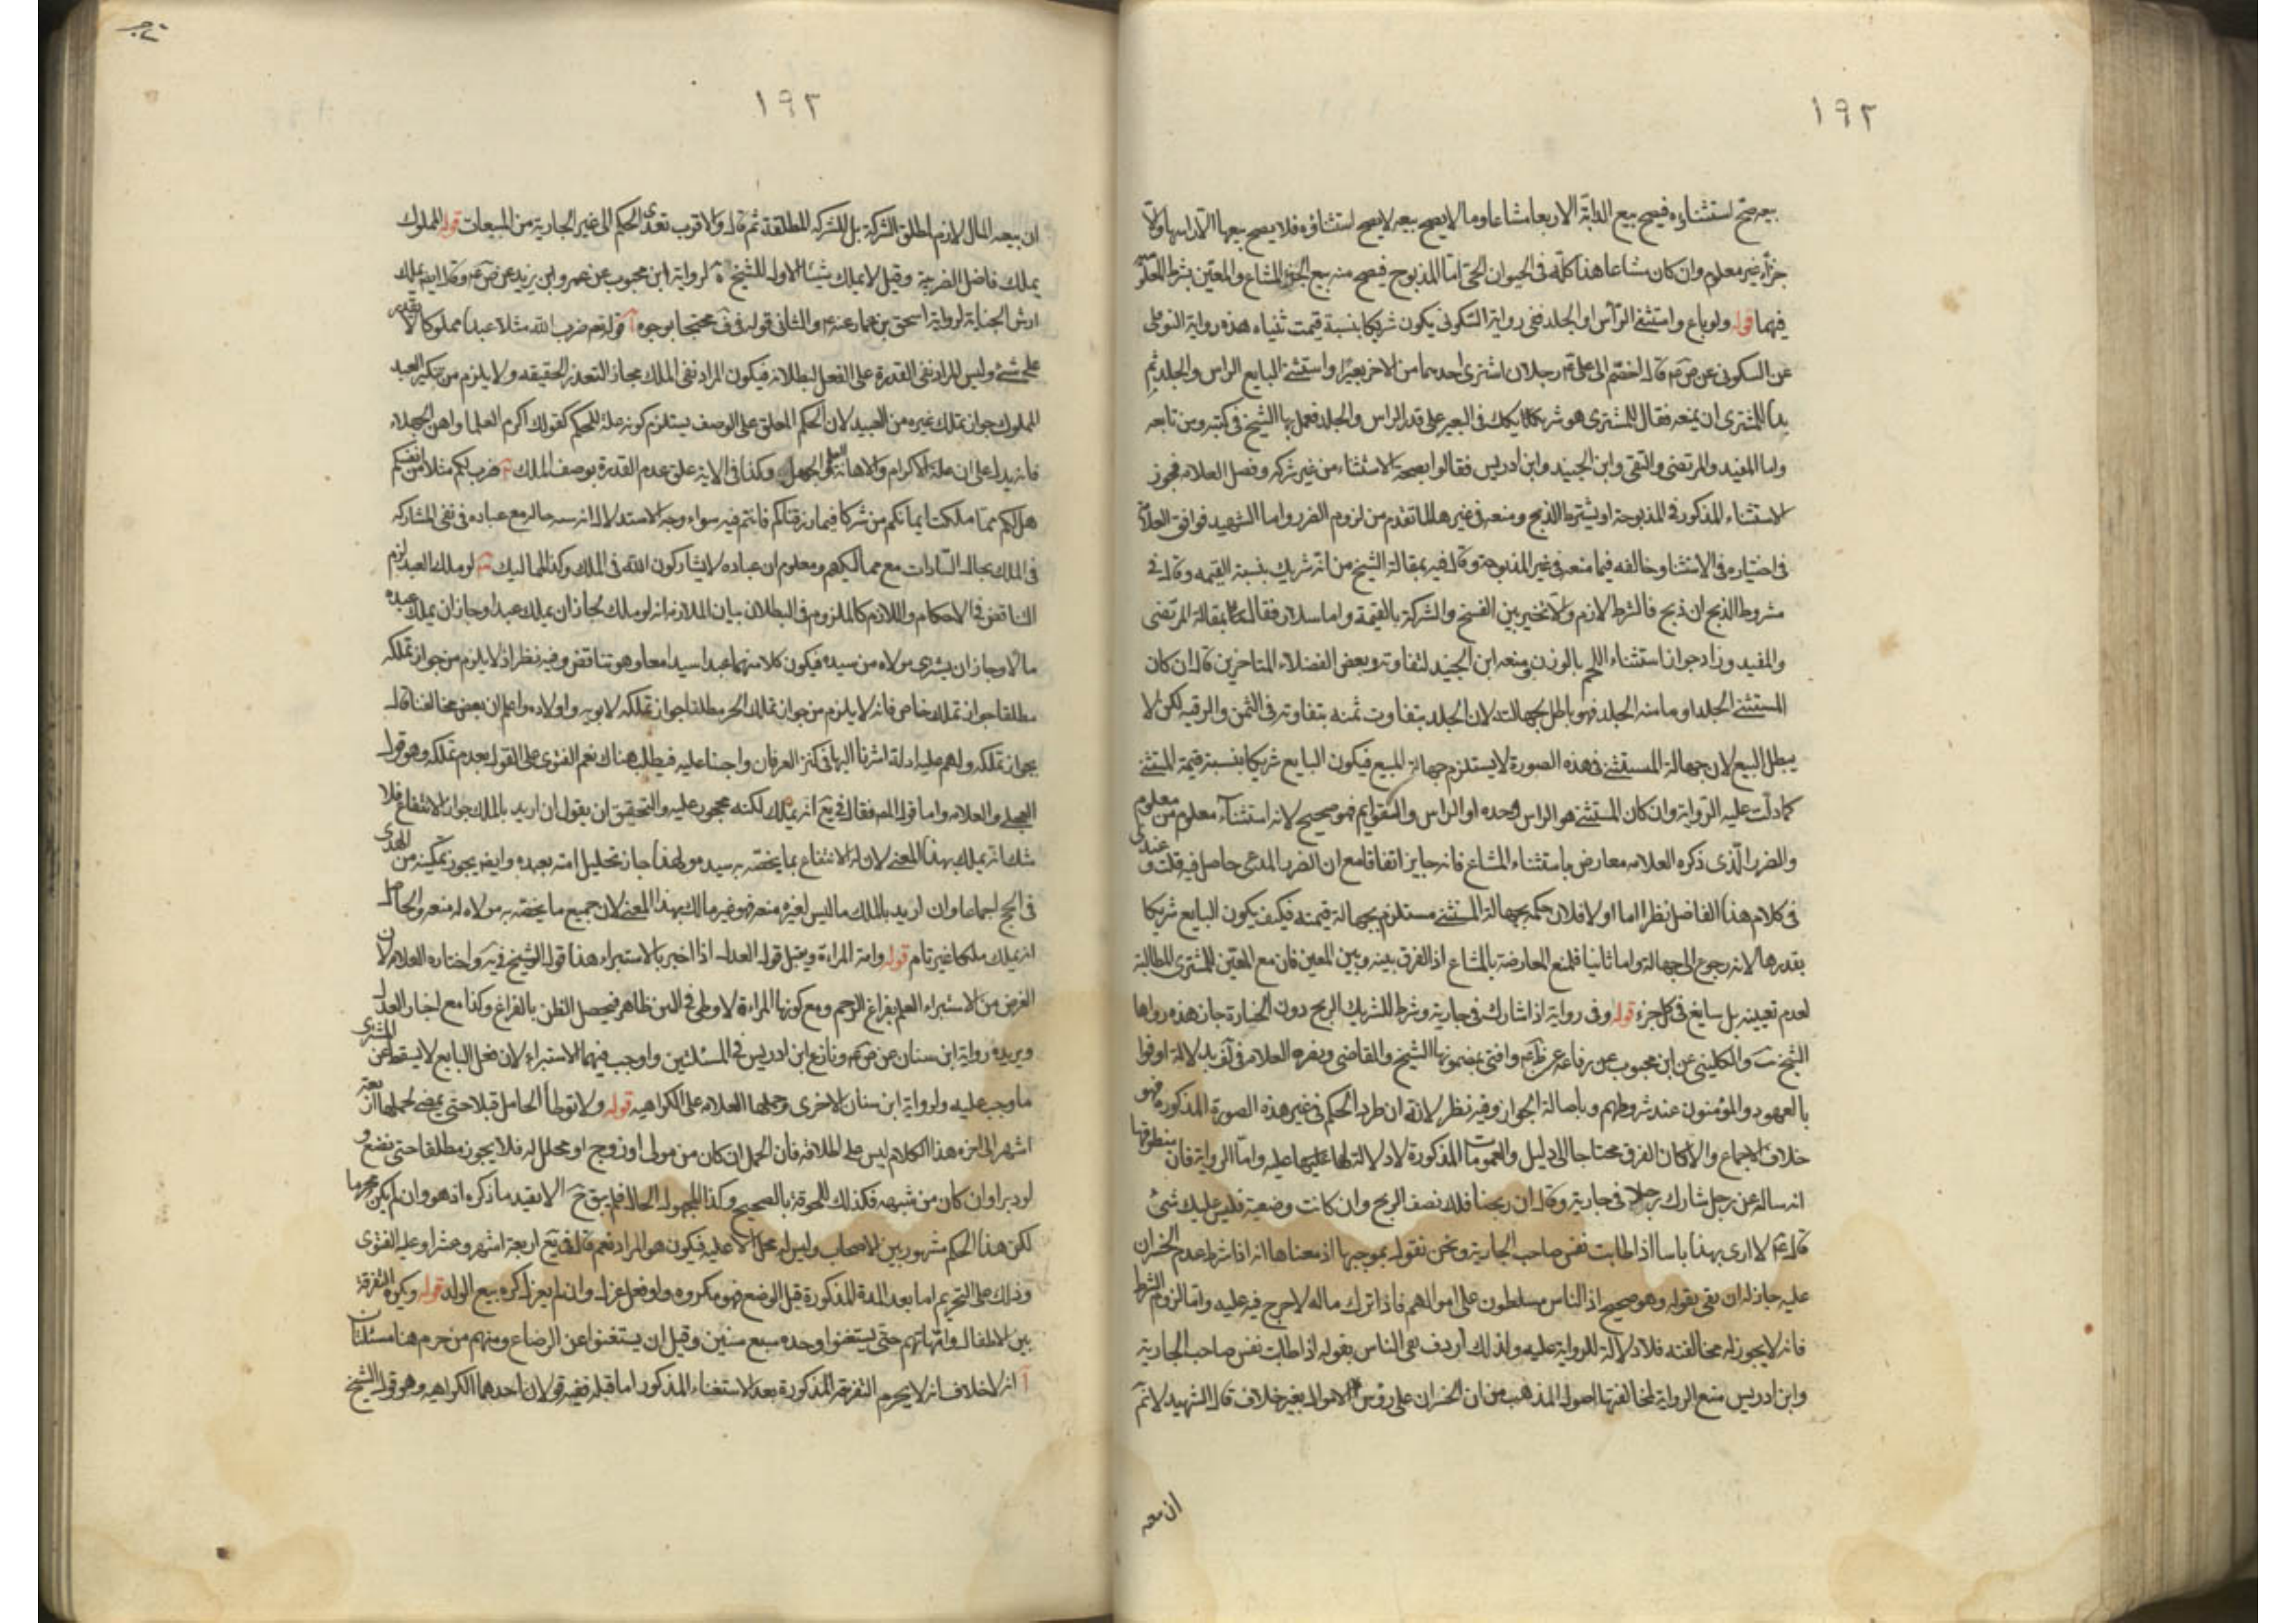 ١٩٢
بيعه صح استثناؤه فيصح بيع الدابة الا ربعا مشاعا وما لا يصح بيعه لا يصح استثناؤه فلا يصح بيعها الا راسها ولا
جزاء غير معلوم وان كان مشاعا هذا كله فى الحيوان الحى اما المذبوح فيصح منه بيع الجزء المشاع والمعين بشرط العلم
فيهما قوله ولو باع واستثنى الراس او الجلد ففى رواية السكونى يكون شريكا بنسبة قيمت ثنياه هذه رواية النوفلى
عن السكونى عن ص ع قال اختصم الى على ع رجلان اشترى احدهما من الاخر بعيرا واستثنى البايع الراس والجلد ثم
بدا للمشترى ان يبيعه فقال للمشترى هو شريكك فى البعير على قدر الراس والجلد فعمل بها الشيخ فى كتبه ومن تابعه
واما المفيد والمرتضى والتقى وابن الجنيد وابن ادريس فقالوا بصحة الاستثناء من غير شركه وفصل العلامه فجوز
الاستثناء المذكور فى المذبوحة او يشترط الذبح ومنعه فى غيرهما لما تقدم من لزوم الضرر واما الشهيد فوافق العلامة
فى اختياره فى الاستثنا وخالفه فيما منعه فى غير المذبوحة وقال فيه بمقالة الشيخ من انه شريك بنسبة القيمه وقال فى
مشروط الذبح ان ذبح فالشرط لازم والا تخير بين الفسخ والشركة بالقيمة واما سلار فقال بمقالة المرتضى
والمفيد وزاد جواز استثناء اللحم بالوزن ومنعه ابن الجنيد لتفاوته وبعض الفضلاء المتاخرين قال ان كان
المستثنى الجلد او ما منه الجلد فهو باطل لجهالته لان الجلد يتفاوت ثمنه بتفاوته فى الثمن والرقيه لكن لا
يبطل البيع لان جهالة المستثنى فى هذه الصورة لا يستلزم جهالة المبيع فيكون البايع شريكا بنسبة قيمة المستثنى
كما دلت عليه الرواية وان كان المستثنى هو الراس وحده او الراس والقوايم فهو صحيح لانه استثناء معلوم من معلوم
والضرر الذى ذكره العلامه معارض باستثناء المشاع فانه جايز اتفاقا مع ان الضرر المدعى حاصل فيه قلت وعندى
فى كلام هذا الفاضل نظر اما اولا فلان حكمه بجهالة المستثنى مستلزم بجهالة قيمته فكيف يكون البايع شريكا
بقدرها لانه رجوع الى جهالة واما ثانيا فلمنع المعارضة بالمشاع اذ الفرق بينه وبين المعين فان مع المعين للمشترى المطالبة
لعدم تعيينه بل سايغ فى كل جزء قوله وفى رواية اذا شارك فى جارية وشرط للشريك الربح دون الخسارة جاز هذه رواها
الشيخ والكلينى عن ابن محبوب عن رفاعه عن ظم ع وافتى بمضمونها الشيخ والقاضى ونصره العلامه فى لف بدلالة اوفوا
بالعهود والمؤمنون عند شروطهم وباصالة الجواز وفيه نظر لانه ان طرد الحكم فى غير هذه الصورة المذكورة فهو
خلاف الاجماع والا كان الفرق محتاجا الى دليل والعمومات المذكورة لا دلالة لها عليه واما الرواية فان منطوقها
انه ساله عن رجل شارك رجلا فى جارية وقال ان ربحنا فلك نصف الربح وان كانت وضيعة فليس عليك شئ
قال ع لا ارى بهذا باسا اذا طابت نفس صاحب الجارية ونحن نقول بموجبها اذ معناها انه اذا شرط عدم الخسران
عليه جاز له ان يفى بقوله وهو صحيح اذ الناس مسلطون على اموالهم فاذا ترك ماله لا حرج فيه عليه واما لزوم الشرط
فانه لا يجوز له مخالفته فلا دلالة للرواية عليه ولذلك اردف نفى الباس بقوله اذا طابت نفس صاحب الجارية
وابن ادريس منع الرواية لمخالفتها اصول المذهب من ان الخسران على رؤس الاموال بغير خلاف قال الشهيد لا نم
ان معه
١٩٢
ان بيعه المال لازم لمطلق الشركة بل للشركه المطلقة ثم قال والاقرب تعدى الحكم الى غير الجارية من المبيعات قوله المملوك
يملك فاضل الضريبة وقيل لا يملك شيئا الاول للشيخ لرواية ابن محبوب عن عمرو بن يزيد عن ص ع وكذا ايضا يملك
ارش الجناية لرواية اسحق بن عمار عنه ع والثانى قوله فى ف محتجا بوجوه آ قوله تع ضرب الله مثلا عبدا مملوكا لا يقدر
على شئ وليس المراد نفى القدرة على الفعل لبطلانه فيكون المراد نفى الملك مجازا لتعذر الحقيقه ولا يلزم من تنكير العبد
المملوك جواز تملك غيره من العبيد لان الحكم المعلق على الوصف يستلزم كونه علة للحكم كقولك اكرم العلما واهن الجهلاء
فانه يدل على ان علة الاكرام والاهانة العلم والجهل وكذا فى الاية علق عدم القدرة بوصف الملك ضرب لكم مثلا من انفسكم
هل لكم مما ملكت ايمانكم من شركا فيما رزقناكم فانتم فيه سواء وجه الاستدلال انه سه حاله مع عباده فى نفى المشاركه
فى الملك بحال السادات مع مماليكهم ومعلوم ان عباده لا يشاركون الله فى الملك وكذا المماليك لو ملك العبد لزم
التناقض فى الاحكام واللازم كالملزوم فى البطلان بيان الملازمه انه لو ملك لجاز ان يملك عبدا وجاز ان يملك عبده
مالا وجاز ان يشترى مولاه من سيده فيكون كلا منهما عبدا سيدا معا وهو تناقض وفيه نظر اذ لا يلزم من جواز تملكه
مطلقا جواز تملك خاص فانه لا يلزم من جواز تملك الحر مطلقا جواز تملكه لابويه واولاده واعلم ان بعض مخالفنا قال
بجواز تملكه ولهم عليه ادلة اشرنا اليها فى كنز العرفان واجبنا عليه فيطلب هناك نعم الفتوى على القول بعدم تملكه وهو قول
العجلى والعلامه واما قول المصر فقال فى يع انه يملك لكنه محجور عليه والتحقيق ان يقول ان اريد بالملك جواز الانتفاع فلا
شك انه يملك بهذا المعنى لان له الانتفاع بما يختصه به سيده ولهذا جاز تحليل امته بعبده وايضا يجوز تمكينه من الهدى
فى الحج اجماعا وان اريد بالملك ما ليس لغيره منعه فهو غير مالك بهذا المعنى لان جميع ما يختصه به مولاه له منعه والحاصل
انه يملك ملكا غير تام قوله وامة المراءة ويقبل قول العدل اذا اخبر بالاستبراء هذا قول الشيخ فى يه واختاره العلامه لان
الغرض من الاستبراء العلم بفراغ الرحم ومع كونها المراءة لا وطى فى البين ظاهر فيحصل الظن بالفراغ وكذا مع اخبار العدل
ويريده رواية ابن سنان عن ص ع ونازع ابن ادريس فى المسئلتين واوجب فيهما الاستبراء لان فعل البايع لا يسقط عن المشترى
ما وجب عليه ولرواية ابن سنان الاخرى وحملها العلامه على الكراهيه قوله ولا توطأ الحامل قبلا حتى يمضى لحملها اربعة
اشهر الى اخره هذا الكلام ليس على اطلاقه فان الحمل ان كان من مولى او زوج او محلل له فلا يجوز مطلقا حتى تضع و
لو دبرا وان كان من شبهه فكذلك للحوقه بالصحيح وكذا المجهول الحال فلم يبق ح الا بقيد ما ذكره اذ هو وان لم يكن محرما
لكن هذا الحكم مشهور بين الاصحاب وليس له محل الا عليه فيكون هو المراد نعم قال فى يع اربعة اشهر وعشرا وعليه الفتوى
وذلك على التحريم اما بعد المدة المذكورة قبل الوضع فهو مكروه ولو فعل عزل وان لم يعزل كره بيع الولد قوله ويكره التفرقة
بين الاطفال وامهاتهم حتى يستغنوا وحده سبع سنين وقيل ان يستغنوا عن الرضاع ومنهم من حرم هنا مسئلتان
آ انه لا خلاف انه لا يحرم التفرقه المذكورة بعد الاستغناء المذكور اما قبله ففيه قولان احدهما الكراهيه وهو قول الشيخ